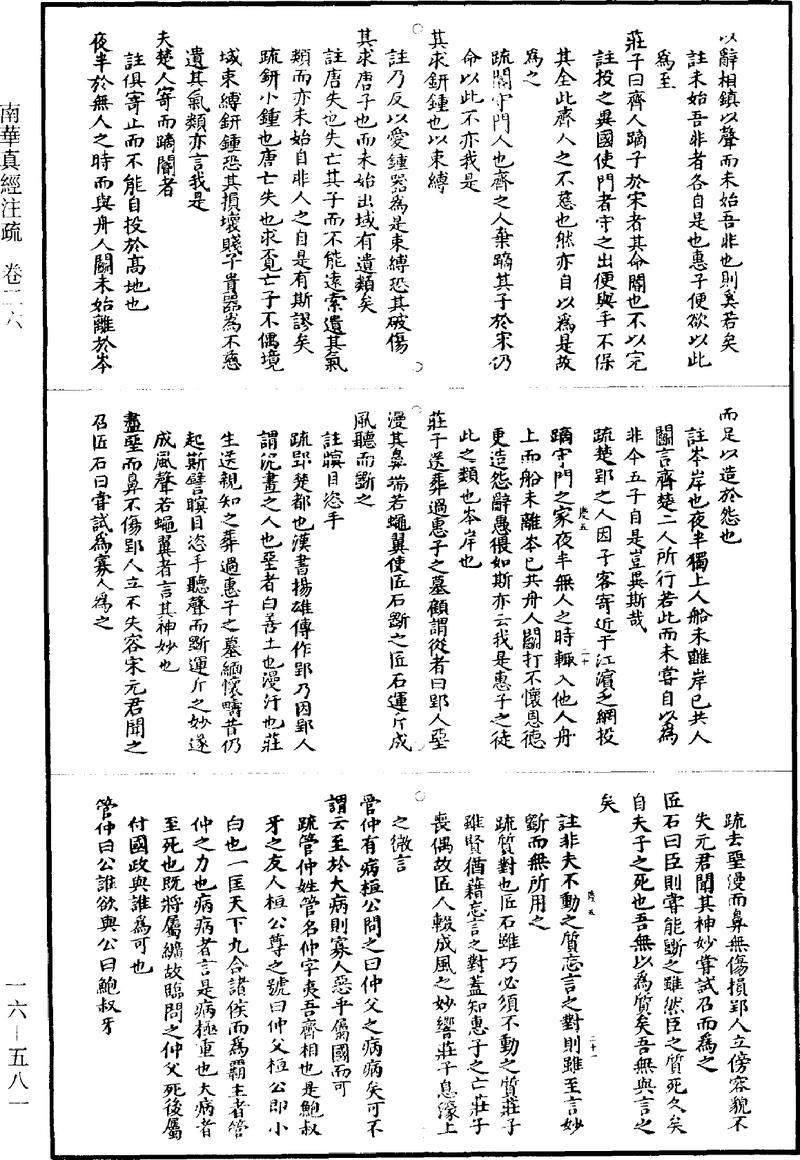 以辭相鎮以聲而未始吾非也則奚若矣
註未始吾非者各自是也惠子便欲以此
為至
莊子曰齊人蹢子於宋者其命閽也不以完
註投之異國使門者守之出便與手不保
其全此齊人之不慈也然亦自以為是故
為之
疏閽守門人也齊之人棄蹢其子於宋仍
命以此不亦我是
其求鈃鍾也以束縛
註乃反以愛鍾器為是束縛恐其破傷
其求唐子也而未始出域有遺類矣
註唐失也失亡其子而不能遠索遺其氣
類而亦未始自非人之自是有斯謬矣
疏鈃小鍾也唐亡失也求覓亡子不偶境
域束縛鈃鍾恐其損壞賤子貴器為不慈
遺其氣類亦言我是
夫楚人寄而蹢閽者
註俱寄止而不能自投於高地也
夜半於無人之時而與舟人鬬未始離於岑
而足以造於怨也
註岑岸也夜半獨上人船未離岸已共人
鬬言齊楚二人所行若此而未嘗自以為
非今五子自是豈異斯哉
疏楚郢之人因子客寄近于江濱之網投
蹢守門之家夜半無人之時輙入他人舟
上而船未離岑已共舟人鬬打不懷恩德
更造怨辭愚猥如斯亦云我是惠子之徒
此之類也岑岸也
莊子送葬過惠子之墓顧謂從者曰郢人堊
漫其鼻端若蠅翼使匠石斲之匠石運斤成
風聽而斲之
註瞋目恣手
疏郢楚都也漢書揚雄傳作郢乃因郢人
謂沉畫之人也堊者白善土也漫汙也莊
生送親知之葬過惠子之墓緬懷疇昔仍
起斯譬瞋目恣手聽聲而斲運斤之妙遂
成風聲若蠅翼者言其神妙也
盡堊而鼻不傷郢人立不失容宋元君聞之
召匠石曰嘗試為寡人為之
疏去堊漫而鼻無傷損郢人立傍容貌不
失元君聞其神妙嘗試召而為之
匠石曰臣則嘗能斲之雖然臣之質死久矣
自夫子之死也吾無以為質矣吾無與言之
矣
註非夫不動之質忘言之對則雖至言妙
斲而無所用之
疏質對也匠石雖巧必須不動之質莊子
雖賢猶藉忘言之對蓋知惠子之亡莊子
喪偶故匠人輟成風之妙響莊子息濠上
之微言
管仲有病桓公問之曰仲父之病病矣可不
謂云至於大病則寡人惡乎屬國而可
疏管仲姓管名仲字夷吾齊相也是鮑叔
牙之友人桓公尊之號曰仲父桓公即小
白也一匡天下九合諸侯而為霸主者管
仲之力也病病者言是病極重也大病者
至死也既將屬纊故臨問之仲父死後屬
付國政與誰為可也
管仲曰公誰欲與公曰鮑叔牙
南華真經注疏　卷二六
一六—五八一